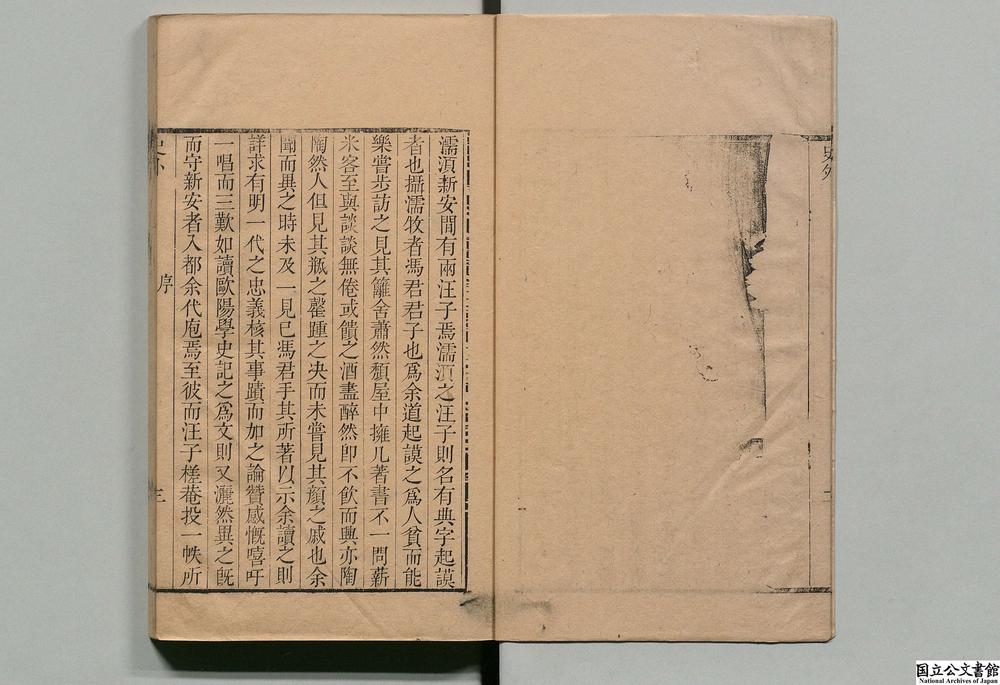 濡湏新安閒有兩汪子焉濡湏之汪子則名有典字起謨
者也攝濡牧者馮君君子也爲余道起謨之爲人貧而能
樂嘗步訪之見其籬舍蕭然頽屋中擁几著書不一問薪
米客至與談談無倦或饋之酒盡醉然卽不飲而興亦陶
陶然人但見其瓶之罄踵之决而未嘗見其顔之戚也余
聞而異之時未及一見已馮君手其所著以示余讀之則
詳求有明一代之忠義核其事蹟而加之論贊感慨嘻吁
一唱而三歎如讀歐陽學史記之爲文則又灑然異之旣
而守新安者入都余代庖焉至彼而汪子槎菴投一帙所
序
三
国立公文書館
National Archives of Japan